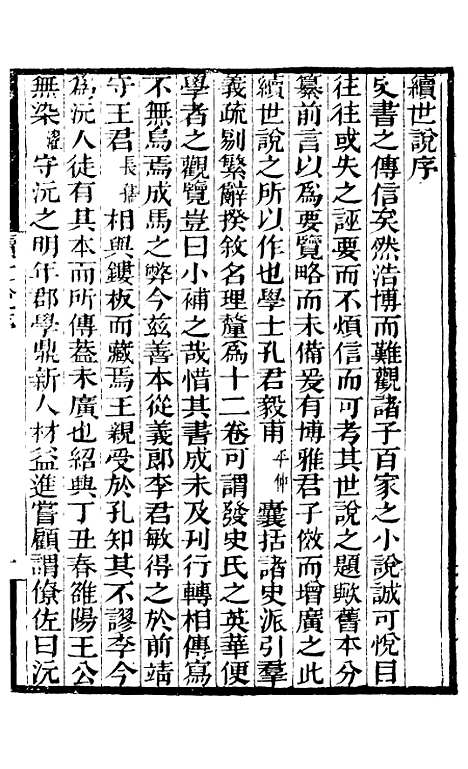 續世說序
史書之傳信矣然浩博而難觀諸子百家之小說誠可悅目
往往或失之誣要而不煩信而可考其世說之題歟舊本分
纂前言以爲要覽略而未備爰有博雅君子倣而增廣之此
續世說之所以作也學士孔君毅甫平仲囊括諸史派引羣
義疏剔繁辭揆敘名理釐爲十二卷可謂發史氏之英華便
學者之觀覽豈曰小補之哉惜其書成未及刋行轉相傳寫
不無烏焉成馬之弊今兹善本從義郎李君敏得之於前靖
守王君長孺相與鏤板而藏焉王親受於孔知其不謬李今
爲沅人徒有其本而所傳葢未廣也紹興丁丑春雒陽王公
無染濯守沅之明年郡學鼎新人材益進嘗顧謂僚佐曰沅